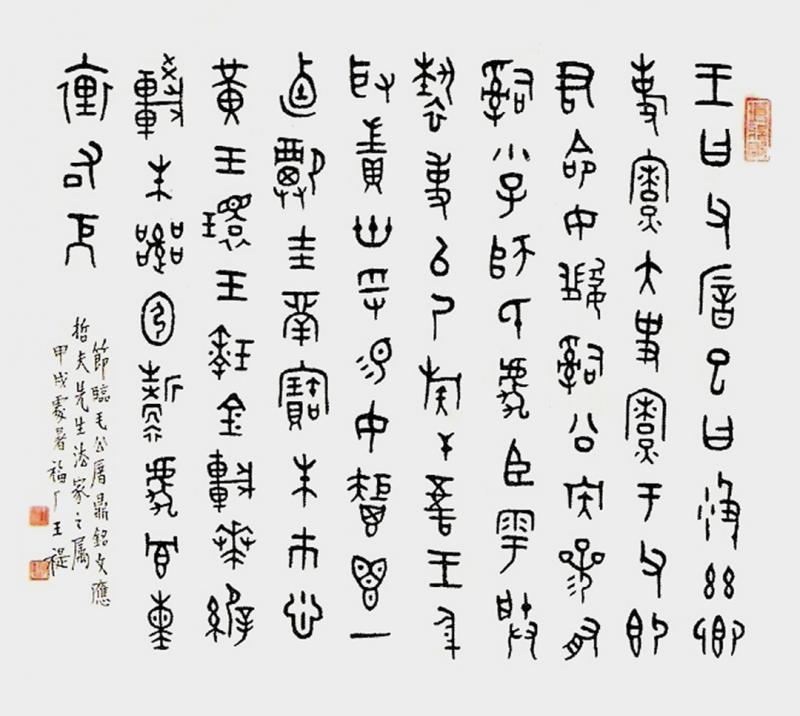 王曰父厝已曰彶茲卿
事寮大史寮于父即
君命女𤔲公族參有
𤔲小子師氏虎臣雩朕
褻事以乃族干吾王身
取賁卅寽易女秬鬯一
卣祼圭瓚寶朱市悤
黃玉環玉瑹金車
較朱靳虎冟熏
右厄
節臨毛公厝鼎銘文應
哲夫先生法家之屬
甲戌處暑福厂王禔